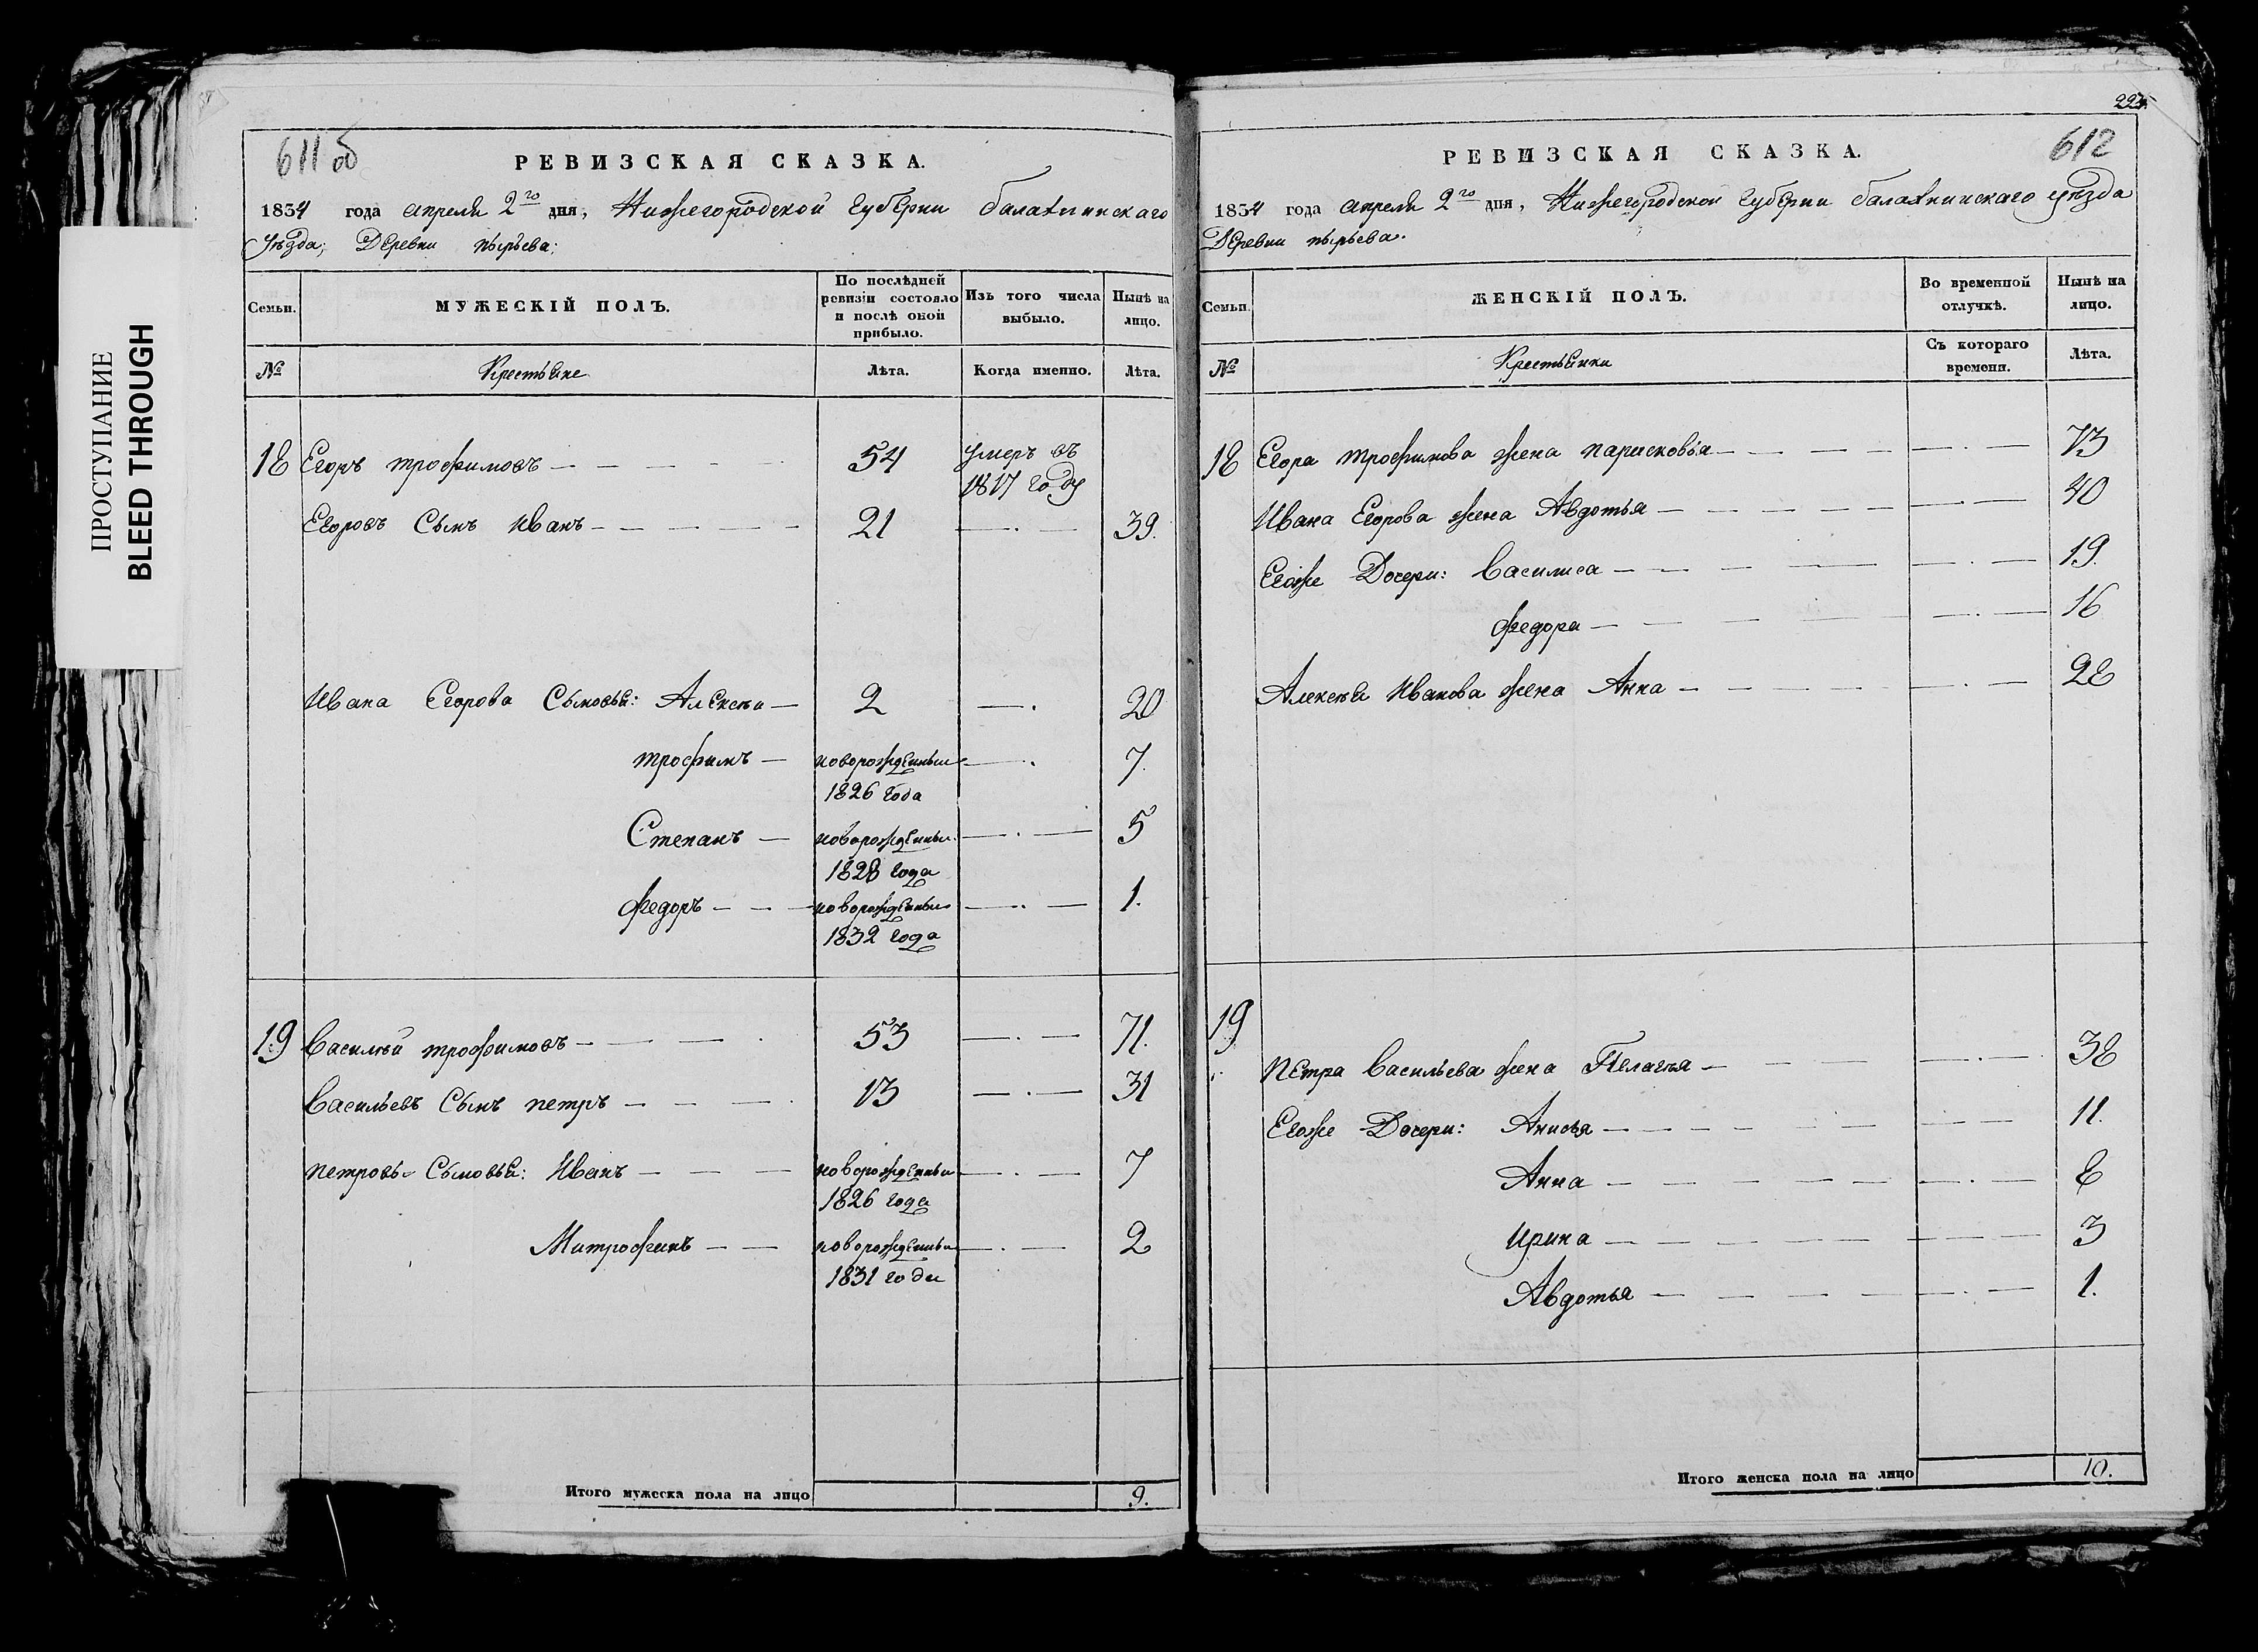 ПРОСТУПАНИЕ
BLEED THROUGH
611 об
РЕВИЗСКАЯ СКАЗКА.
1834 года апреля 2го дня, Нижегородской Губернии балахнинскаго
уѣзда; Деревни пырьева:
Семьи.
МУЖЕСКІЙ ПОЛЪ.
По послѣдней ревизіи состояло и послѣ оной прибыло.
Изъ того числа выбыло.
Нынѣ на лицо.
№
Крестьяне
Лѣта.
Когда именно.
Лѣта.
18 Егоръ трофимовъ 54 умеръ въ
1817 году
Егоровъ Сынъ Иванъ 21 39.
Ивана Егорова Сыновья: Алексѣй 2 20
трофимъ новорожденный 7.
1826 Года
Степанъ новорожденный 5
1828 года
федоръ новорожденный 1.
1832 года
19 Василей трофимовъ 53 71.
Васильевъ Сынъ петръ 13 31
петровы Сыновья: Иванъ новорожденный 7
1826 года
Митрофанъ новорожденный 2
1831 года
Итого мужеска пола на лицо 9.
612
РЕВИЗСКАЯ СКАЗКА.
1834 года апреля 2го дня, Нижегородской Губернии балахнинскаго уѣзда
Деревни пырьева.
Семьи.
ЖЕНСКІЙ ПОЛЪ.
Во временной отлучкѣ.
Нынѣ на лицо.
№
Крестьянки
Съ котораго времени.
Лѣта.
18 Егора трофимова жена парисковья 73
Ивана Егорова жена Авдотья 40
Егоже Дочери: Василиса 19.
федора 16
Алексѣя Иванова жена Анна 28
19
петра Васильева жена Пелагѣя 38
Егоже Дочери: Анисья 11.
Анна 8
Ирина 3
Авдотья 1.
Итого женска пола на лицо 10.